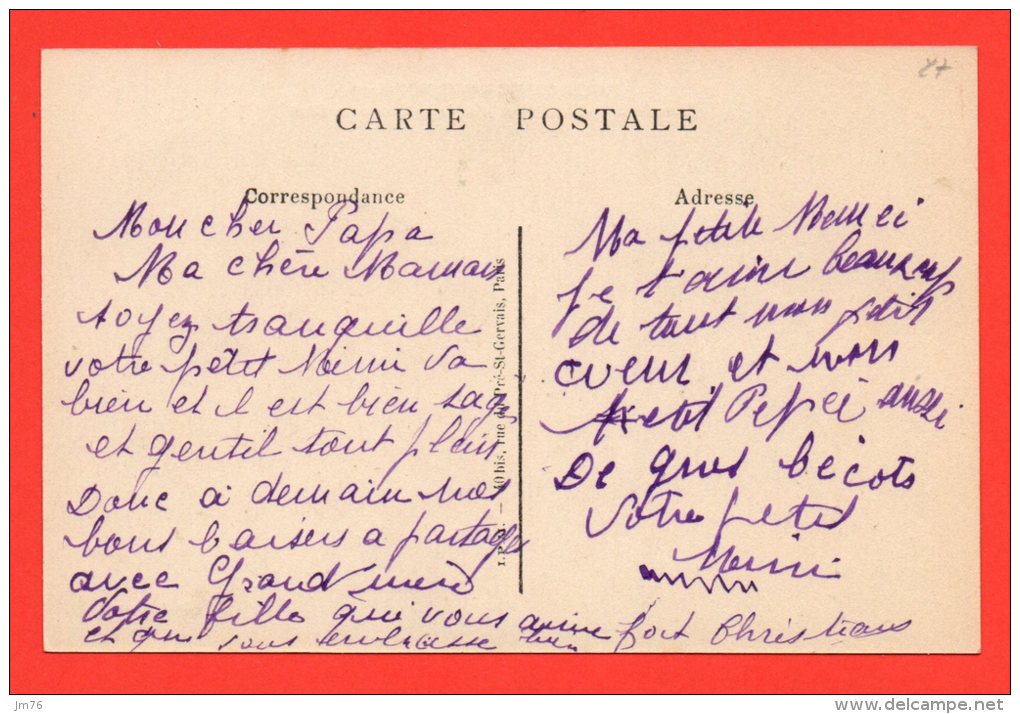 27
CARTE POSTALE
Correspondance
Mon cher Papa
Ma chère Maman
soyez tranquille
votre petit Mimi va
bien et il est bien sage
et gentil tout plein
Donc à demain nos
bons baisers a partager
avec Grand mère
Votre fille qui vous aime fort Christiane
et qui vous embrasse bien
I.P.M. — 40 bis, rue du Pré-St-Gervais, Paris
Adresse
Ma petite Memei
je t'aime beaucoup
de tout mon petit
coeur et mon
petit Pepei aussi
De gros bécots
Votre petit
Mimi
jm76
www.delcampe.net